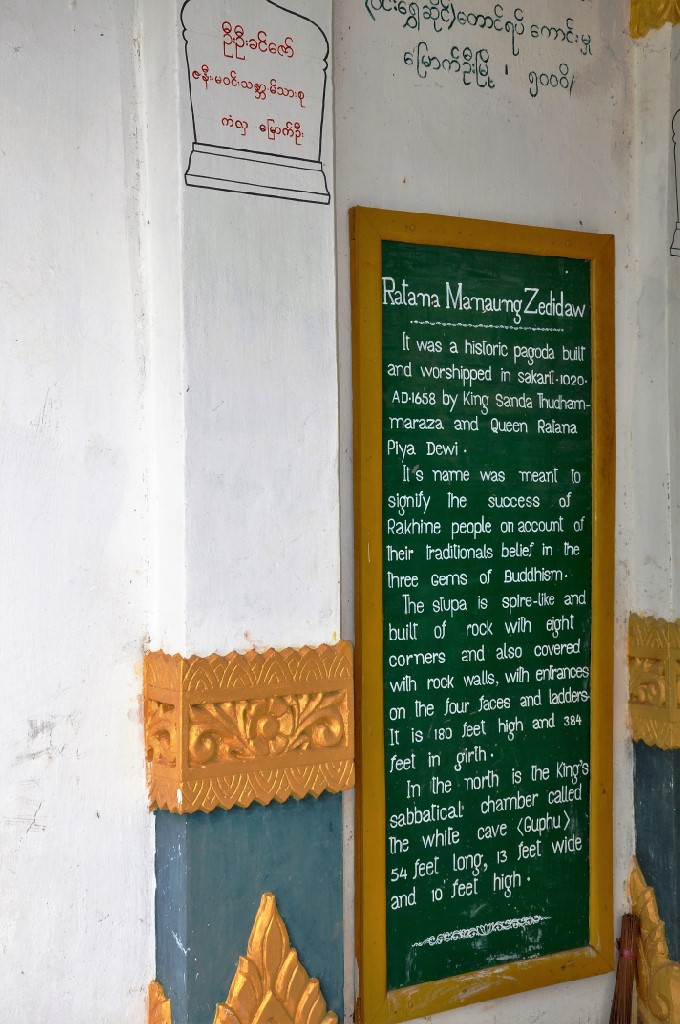 ဦးဦးခင်ဇော်
ဇနီး မဝင်း
မြောက်ဦး
တောင်ရပ် ကောင်းမှု
မြောက်ဦးမြို့၊ ၅၀၀၀ိ/
Ratana Manaung Zedidaw
It was a historic pagoda built
and worshipped in sakarit.1020.
AD.1658 by King Sanda Thudham-
maraza and Queen Ratana
Piya Dewi.
It's name was meant to
signify the success of
Rakhine people on account of
their traditionals belief in the
three Gems of Buddhism.
The stupa is spire-like and
built of rock with eight
corners and also covered
with rock walls, with entrances
on the four faces and ladders.
It is 180 feet high and 384
feet in girth.
In the north is the King's
sabbatical chamber called
the white cave <Guphu>
54 feet long, 13 feet wide
and 10 feet high.